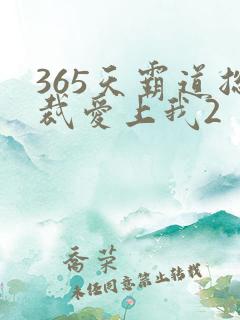 365天霸道总
裁爱上我2
乔荣
未经同意禁止转载